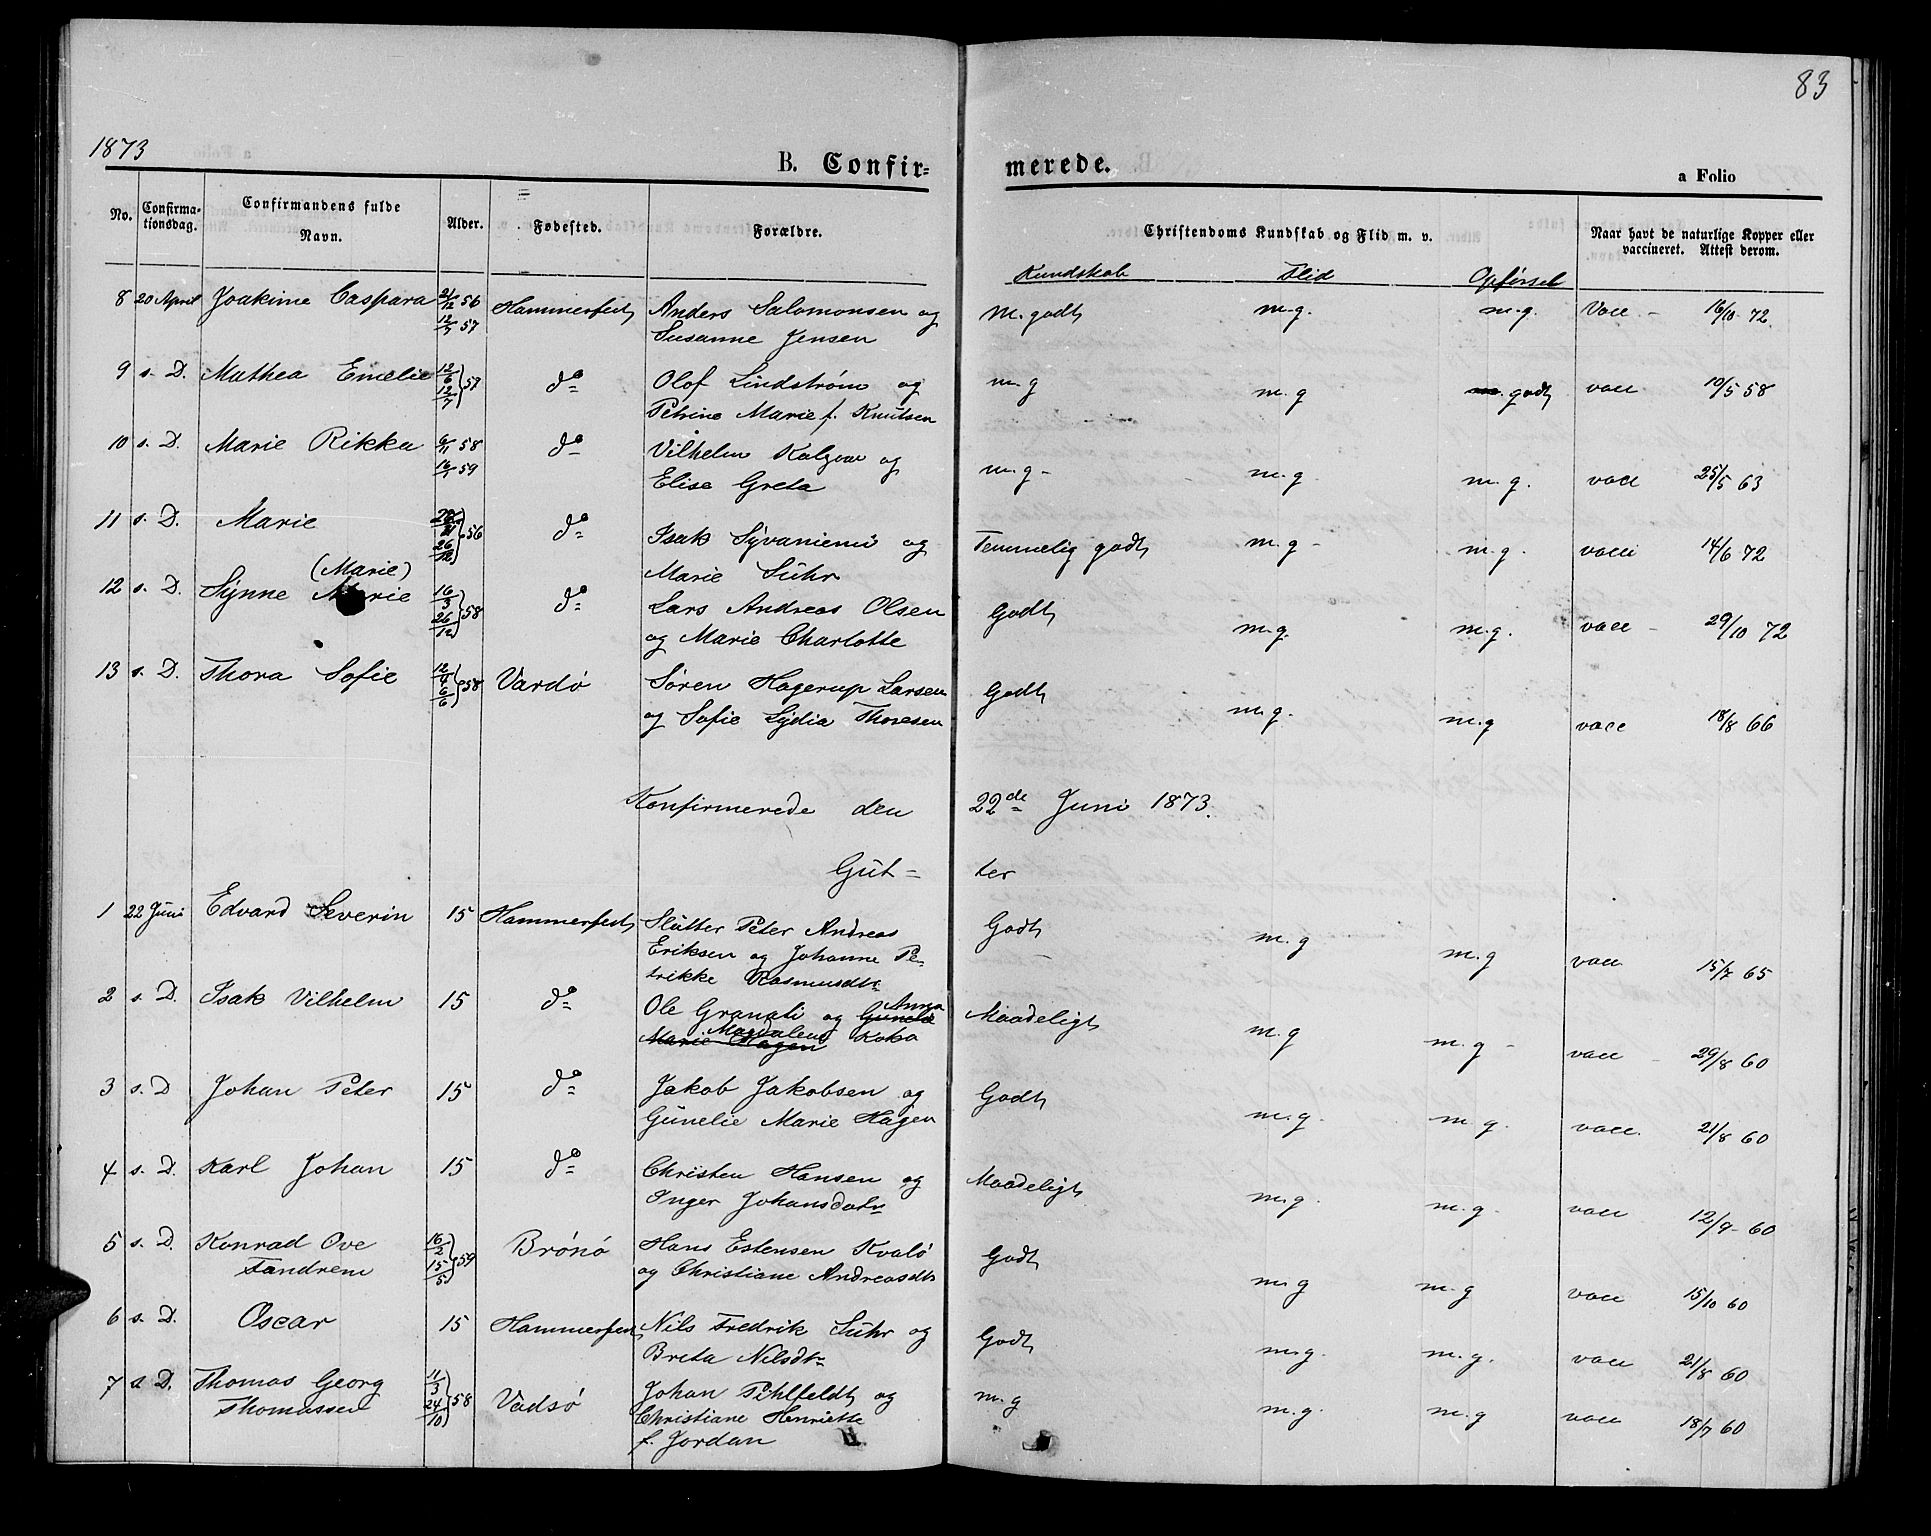 83
1873
B. Confir=
merede.
a Folio
No.
Confirma-
tionsdag.
Confirmandens fulde
Navn.
Alder.
Fødested.
Forældre.
Christendoms Kundskab og Flid m. v.
Naar havt de naturlige Kopper eller
vaccineret. Attest derom.
Kundskab Flid Opførsel
8 20 April Joakime Caspara 21/12 56 Hammerfest Anders Salomonsen og M. godt m.g. m.g. Vacc - 16/10 72.
12/7 57 Susanne Jensen
9 s. D. Mathea Emelie 12/6 12/7 } 57 do Olof Lindstrøm og m.g m.g m. godt vacc 10/5 58
Petrine Marie f. Knutsen
10 s. D. Marie Rikka 6/11 58 do Vilhelm og m.g- m.g. m.g. vacc 25/5 63
16/1 59 Elise Greta
11 s. D. Marie 26/12 } 56 do Isak Syvaniemi og Temmelig godt m.g - m.g. vacc 14/6 72
Marie Suhr
(Marie)
12 s. D. Synne Marie 16/3 26/12 } 58 do Lars Andreas Olsen Godt m.g. m.g. vacc - 29/10 72
og Marie Charlotte
13 s. D. Thora Sofie 12/4 6/6 } 58 Vardø Søren Hagerup Larsen Godt m.g. m.g vacc 18/8 66
og Sofie Lydia Thoresen
Konfirmerede den 22de Juni 1873.
Gut- ter
1 22 Juni Edvard Severin 15 Hammerfest Slutter Peter Andreas Godt m.g m.g vacc 15/7 65
Eriksen og Johanne Pe-
trikke Rasmusdtr
2 s. D. Isak Vilhelm 15 do Ole Granati og Gunelie Anna Maadeligt m.g m.g - vacc - 29/8 60
Marie Hagen Magdalena Koko
3 s. D Johan Peter 15 do Jakob Jakobsen og Godt m.g. m.g. vacc. 21/8 60
Gunelie Marie Hagen
4 s. D. Karl Johan 15 do Christen Hansen og Maadeligt m.g. m.g. vacc 12/9 60
Inger Johansdatr
5 s. D. Konrad Ove 16/2 15/5 } 59 Brönö Hans Estensen Kvalö Godt m.g m.g vacc 15/10 60
Tandrem og Christiane Andreasdtr
6 s. D. Oscar 15 Hammerfest Nils Fredrik Suhr og Godt m.g. m.g. vacc 21/8 60
Breta Nilsdtr
7 s D. Thomas Georg 11/3 24/10 } 58 Vadsø Johan Pihlfeldt og m.g m.g. m.g vacc 18/7 60
Thomassen Christiane Henriette
f. Jordan